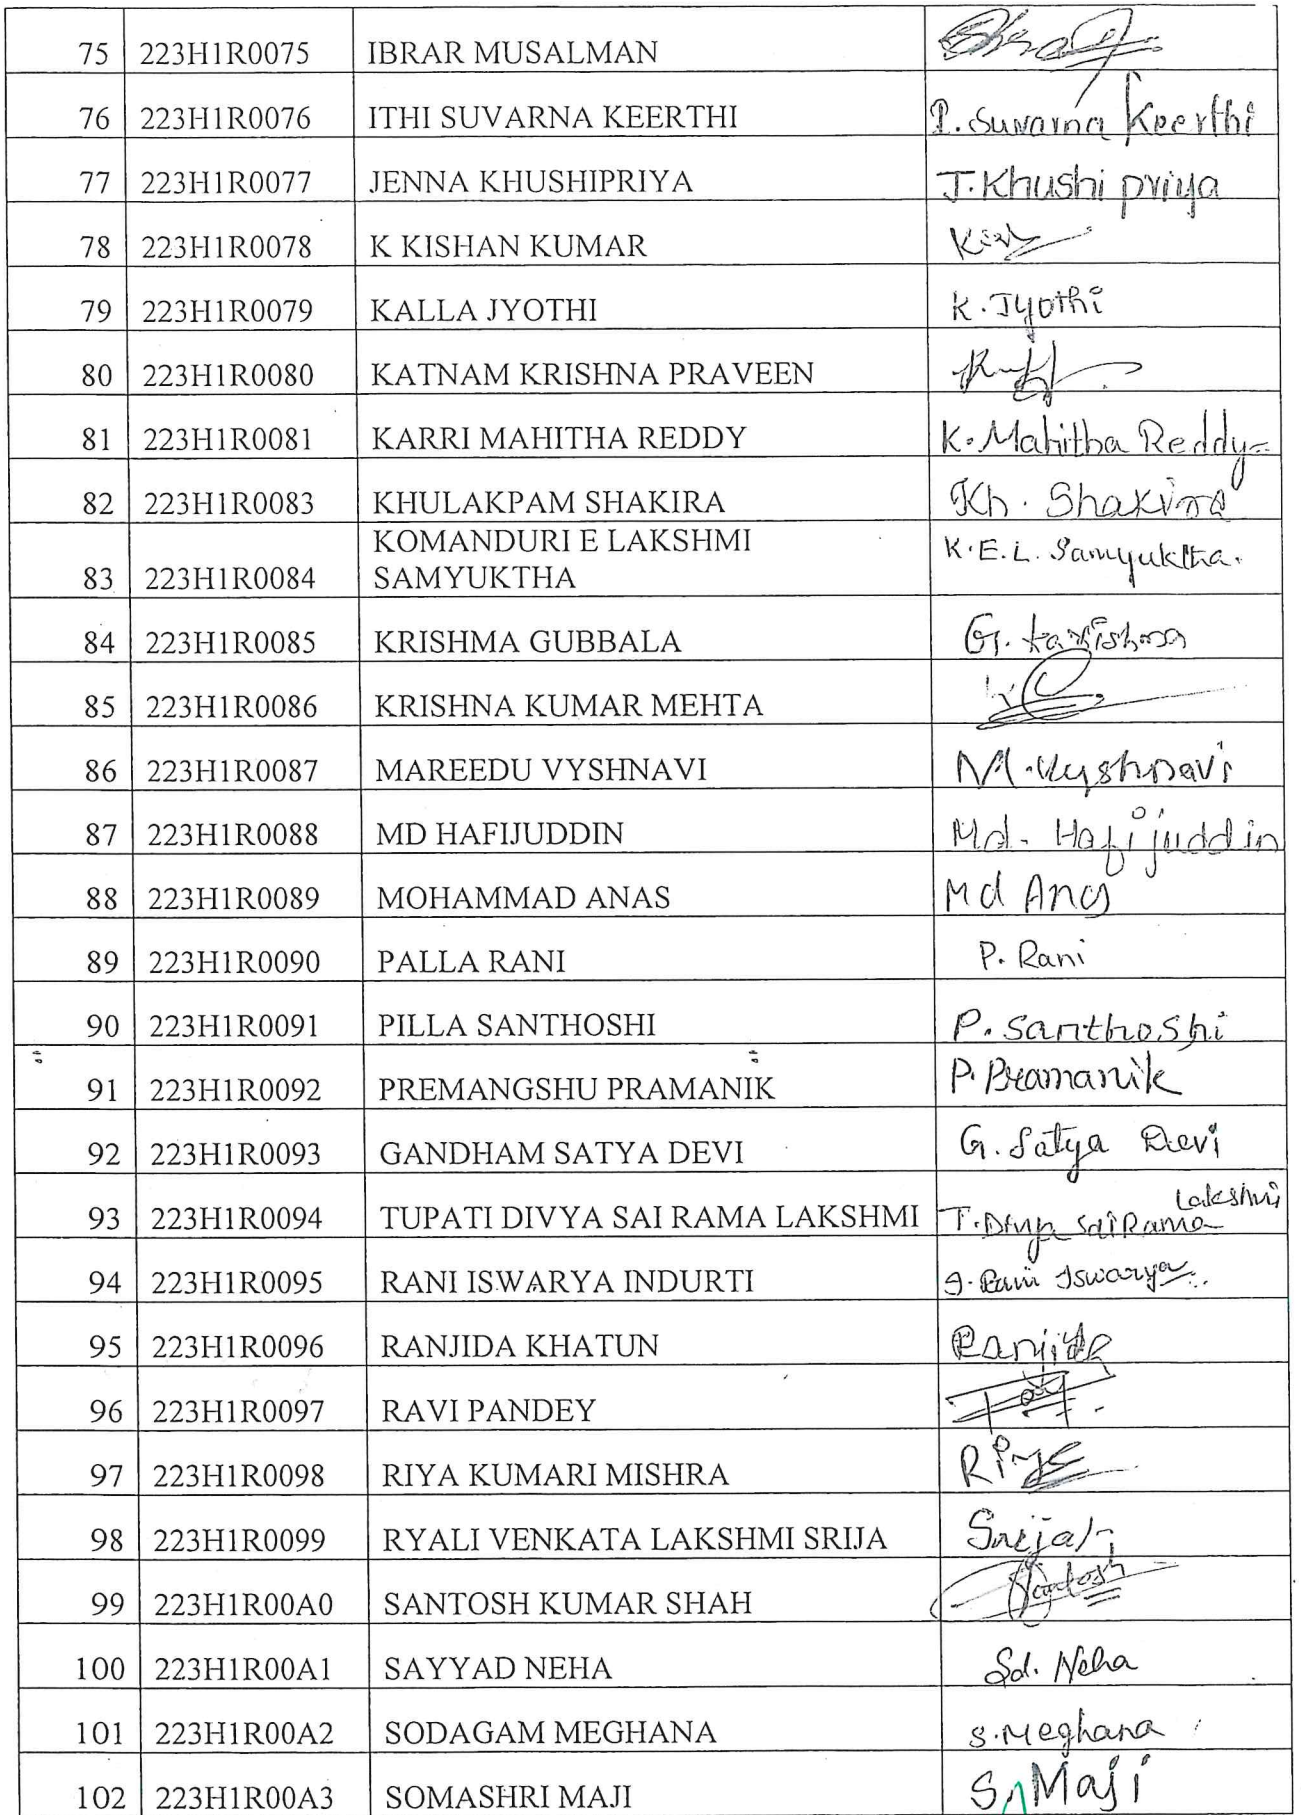 75 223H1R0075 IBRAR MUSALMAN
76 223H1R0076 ITHI SUVARNA KEERTHI I. Suvarna Keerthi
77 223H1R0077 JENNA KHUSHIPRIYA J. Khushi priya
78 223H1R0078 K KISHAN KUMAR
79 223H1R0079 KALLA JYOTHI K. Jyothi
80 223H1R0080 KATNAM KRISHNA PRAVEEN
81 223H1R0081 KARRI MAHITHA REDDY K. Mahitha Reddy
82 223H1R0083 KHULAKPAM SHAKIRA Kh. Shakira
KOMANDURI E LAKSHMI K.E.L. Samyuktha.
83 223H1R0084 SAMYUKTHA
84 223H1R0085 KRISHMA GUBBALA G.
85 223H1R0086 KRISHNA KUMAR MEHTA
86 223H1R0087 MAREEDU VYSHNAVI M. Vyshnavi
87 223H1R0088 MD HAFIJUDDIN Md. Hafijuddin
88 223H1R0089 MOHAMMAD ANAS Md Anas
89 223H1R0090 PALLA RANI P. Rani
90 223H1R0091 PILLA SANTHOSHI P. Santhoshi
91 223H1R0092 PREMANGSHU PRAMANIK P. Pramanik
92 223H1R0093 GANDHAM SATYA DEVI G. Satya Devi
Lakshmi
93 223H1R0094 TUPATI DIVYA SAI RAMA LAKSHMI T. Divya Sai Rama
94 223H1R0095 RANI ISWARYA INDURTI I. Rani Iswarya
95 223H1R0096 RANJIDA KHATUN Ranjida
96 223H1R0097 RAVI PANDEY
97 223H1R0098 RIYA KUMARI MISHRA Riya
98 223H1R0099 RYALI VENKATA LAKSHMI SRIJA Srija
99 223H1R00A0 SANTOSH KUMAR SHAH Santosh
100 223H1R00A1 SAYYAD NEHA Sd. Neha
101 223H1R00A2 SODAGAM MEGHANA S. Meghana
102 223H1R00A3 SOMASHRI MAJI S. Maji